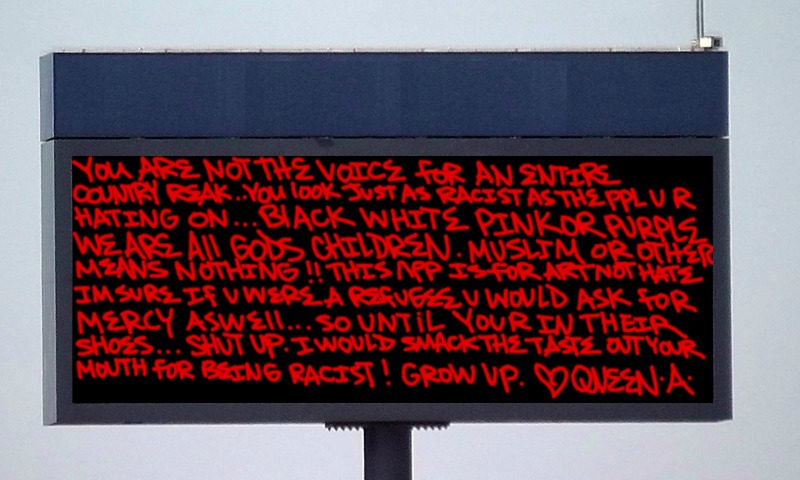 YOU ARE NOT THE VOICE FOR AN ENTIRE
COUNTRY REAK..YOU LOOK JUST AS RACIST AS THE PPL U R
HATING ON... BLACK WHITE PINK OR PURPLE
WE ARE All GODS CHILDREN. MUSLIM OR OTHER
MEANS NOTHING!! THIS APP IS FOR ART NOT HATE
IM SURE IF U WERE A REFUGEE U WOULD ASK FOR
MERCY ASWEll... SO UNTIL YOUR IN THEIR
SHOES... SHUT UP. I WOULD SMACK THE TASTE OUT YOUR
MOUTH FOR BEING RACIST! GROW UP. ♡QUEEN.A.